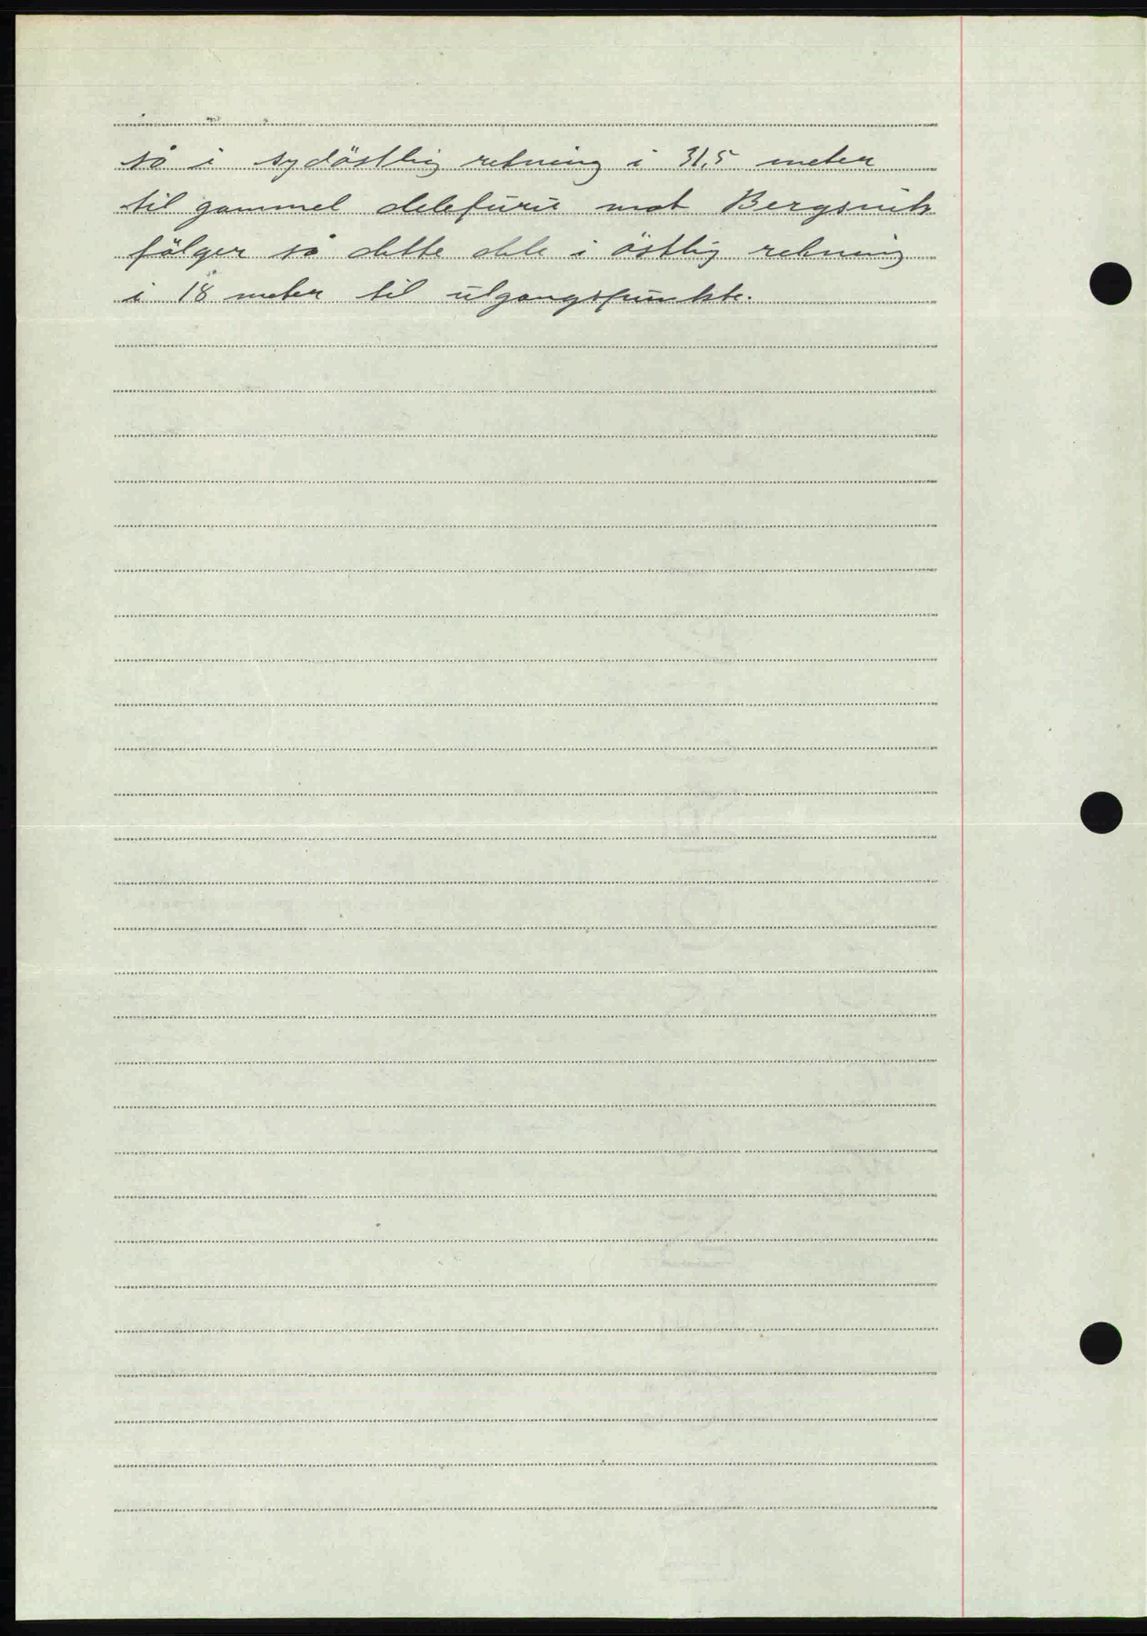 så i sydöstlig retning i 31,5 meter
til gammel delefuru mot Bergsvik
fölger så dette dele i östlig retning
i 18 meter til utgangspunkte.